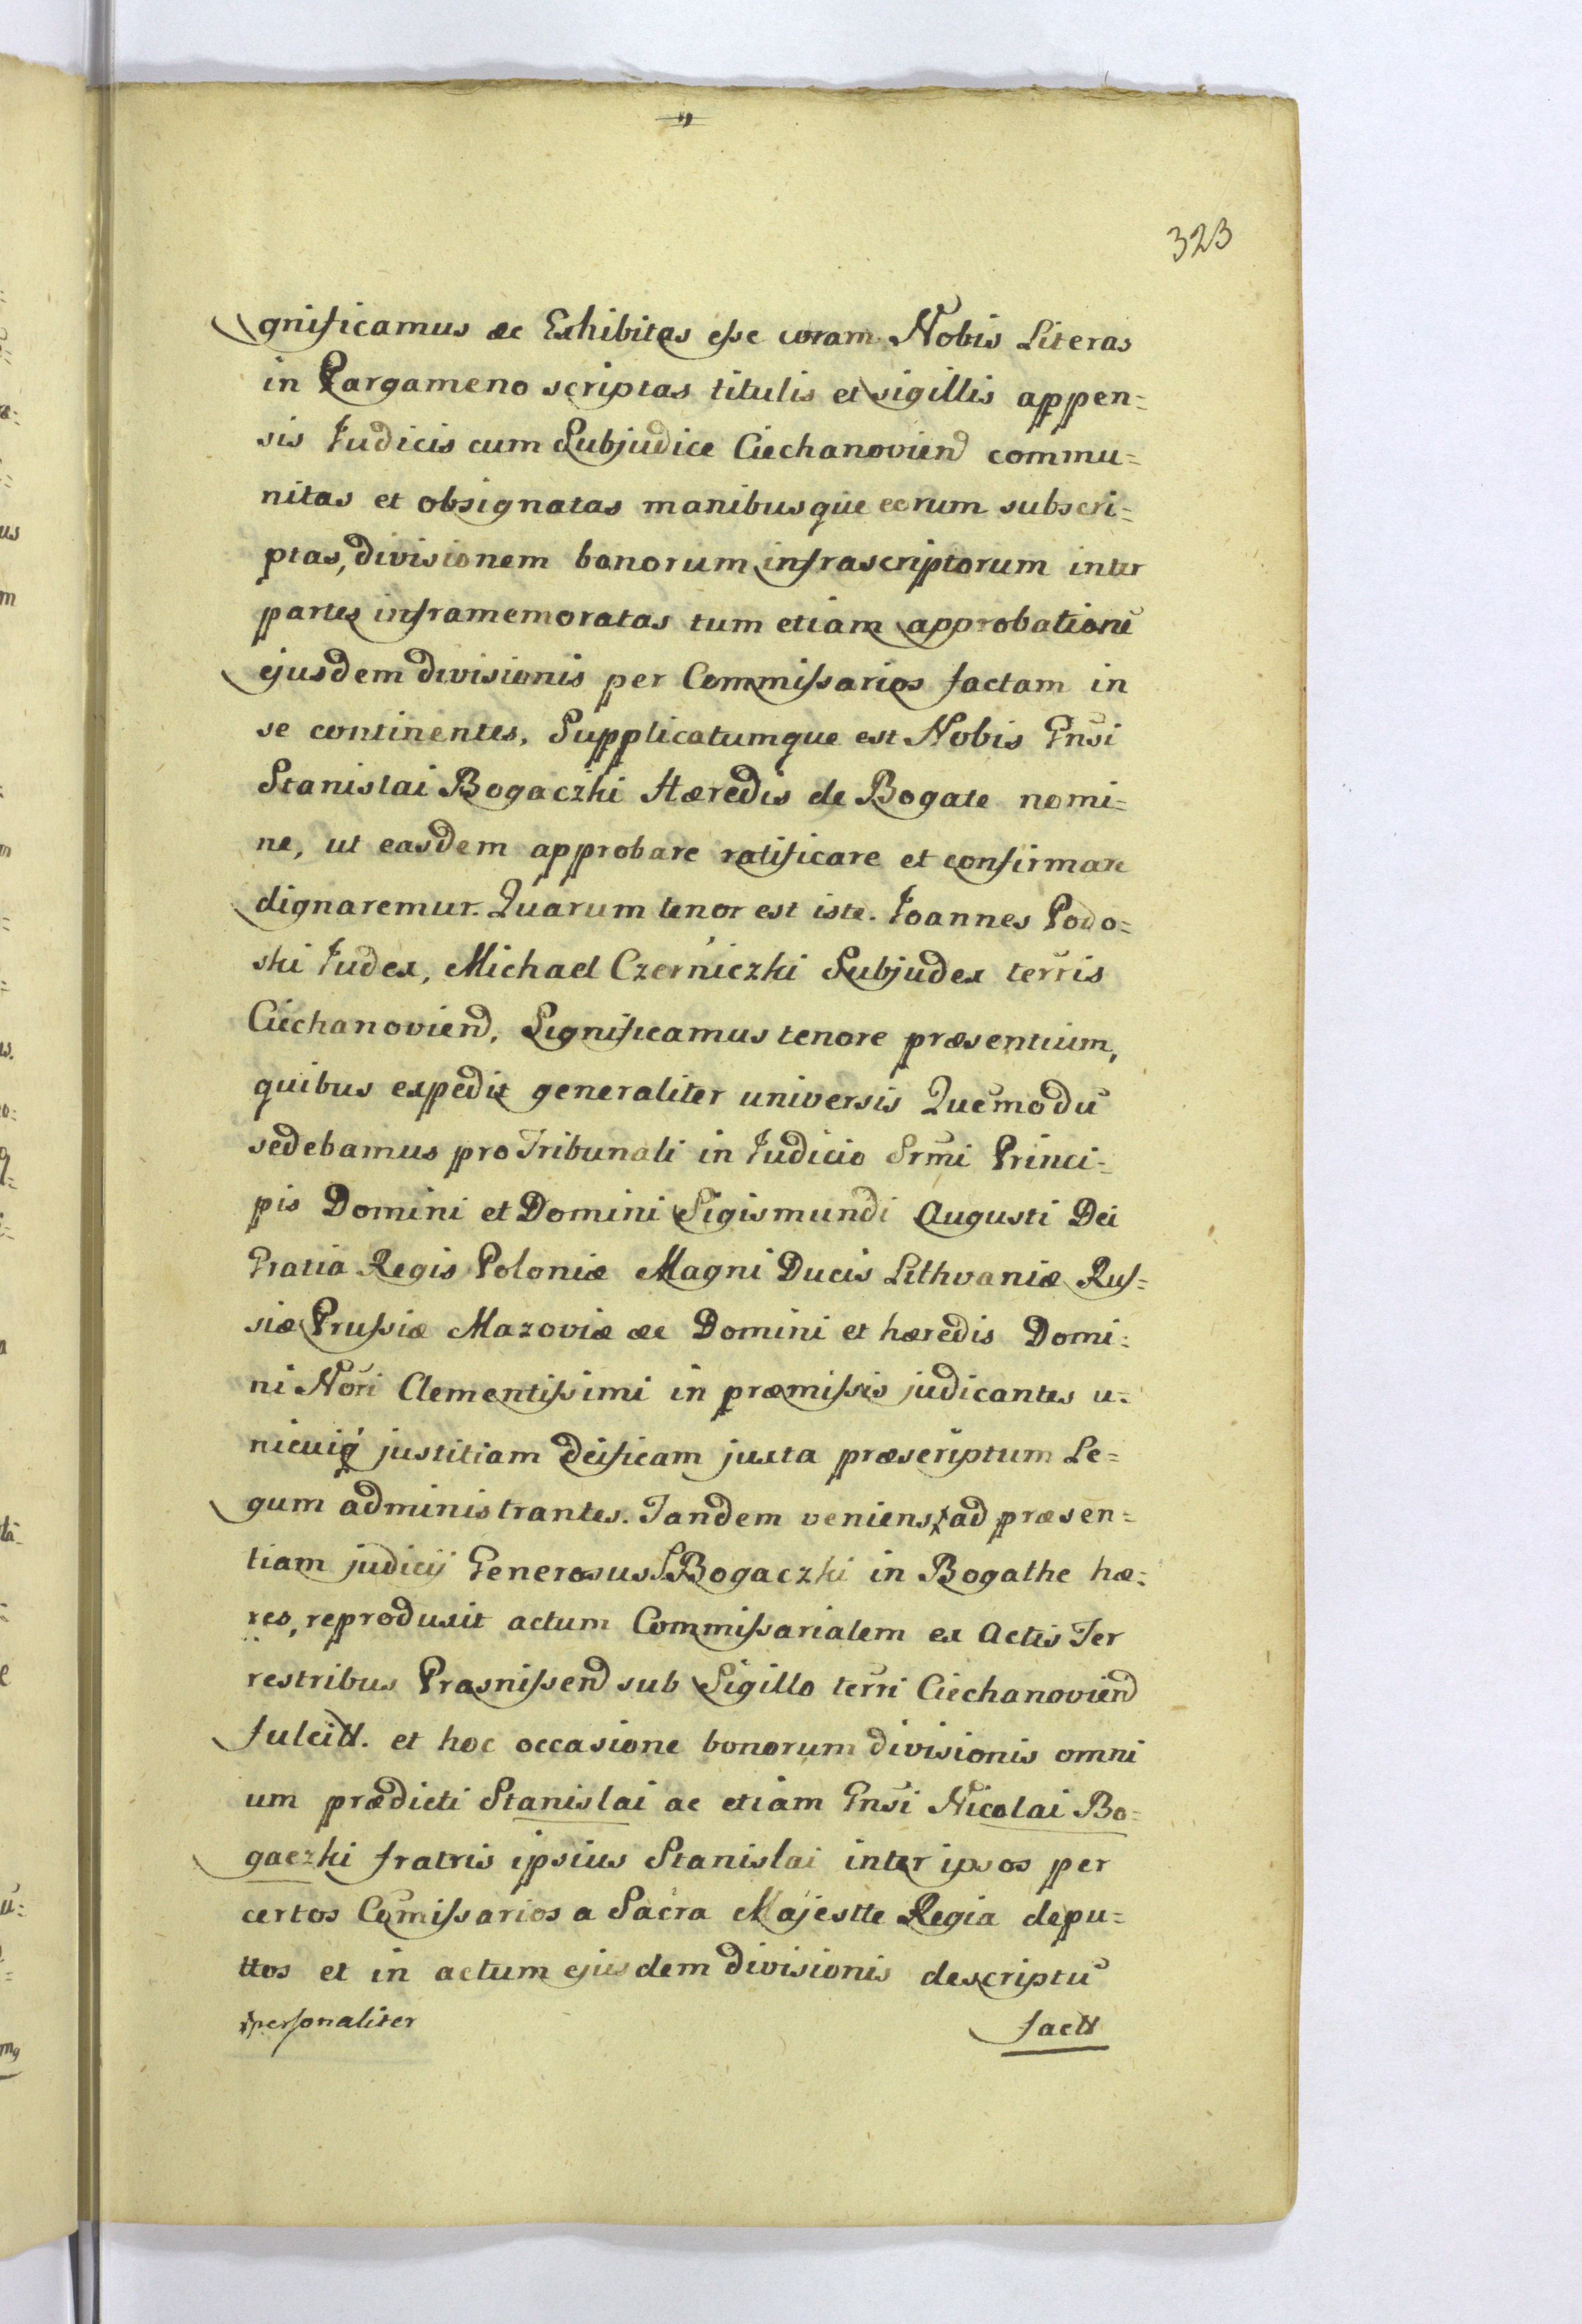 323
gnificamus &c Exhibitas esse coram Nobis Literas
in Pargameno scriptas titulis et sigillis appen=
sis Judicis cum Subjudice Ciechanovien̄ commu=
nitas et obsignatas manibusque eorum subscri=
ptas, divisionem bonorum infrascriptorum inter
partes inframemoratas tum etiam approbationē
ejusdem divisionis per Commissarios factam in
se continentes, Supplicatumque est Nobis Gnsi
Stanislai Bogaczki Hæredis de Bogate nomi=
ne, ut easdem approbare ratificare et confirmare
dignaremur. Quarum tenor est iste. Joannes Podo=
ski Judex, Michael Czerniczki Subjudex terris
Ciechanovien̄, Significamus tenore præsentium,
quibus expedit generaliter universis Quēmodū
sedebamus pro Tribunali in Judicio Srm̄i Princi=
pis Domini et Domini Sigismundi Augusti Dei
Gratia Regis Poloniæ Magni Ducis Lithvaniæ Rus=
siæ Prussiæ Mazoviæ &c Domini et hæredis Domi=
ni Nōri Clementissimi in præmissis judicantes u=
nicuiq́ justitiam deificam juxta præscriptum Le=
gum administrantes. Tandem veniens ad præsen=
tiam judicij Generosus S Bogaczki in Bogathe hæ=
res, reproduxit actum Commissarialem ex Actis Ter
restribus Prasnissen̄ sub Sigillo terri Ciechanovien̄
fulcitt. et hoc occasione bonorum divisionis omni
um prædicti Stanislai ac etiam Gnsi Nicolai Bo=
gaczki fratris ipsius Stanislai inter ipsos per
certos Comissarios a Sacra Majestte Regia depu=
ttos et in actum ejusdem divisionis descriptū
personaliter factt